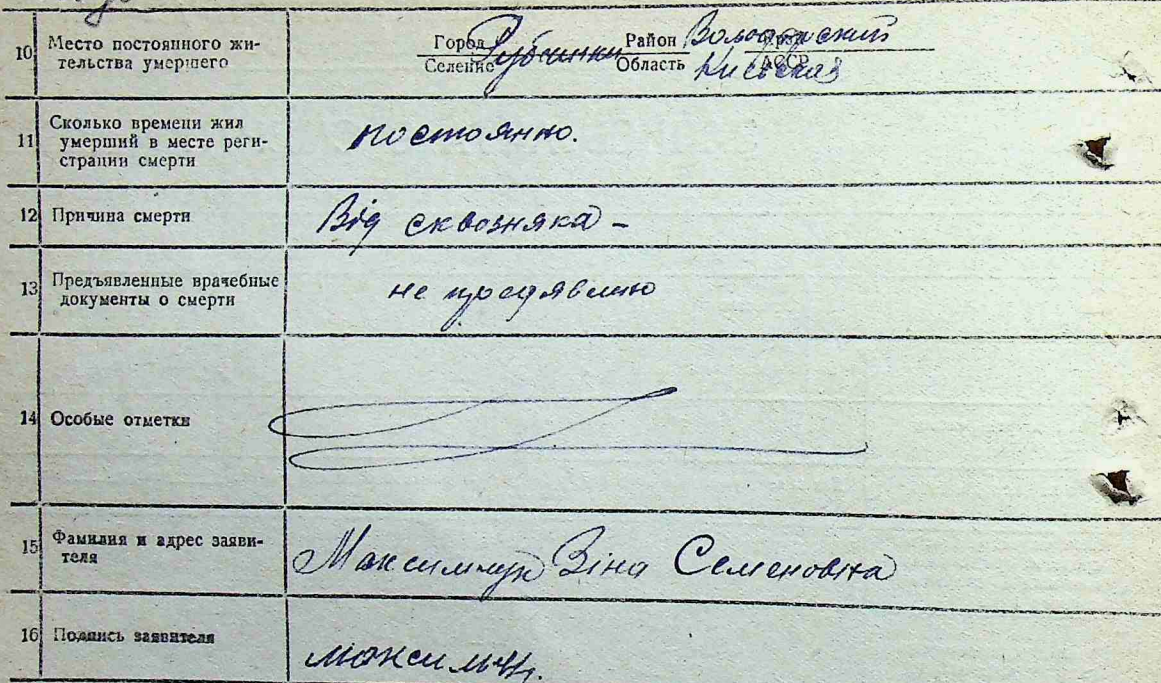 10 Место постоянного жи-
тельства умершего
Город Район Край
Селение Область Киевская АССР
11 Сколько времени жил
умерший в месте реги-
страции смерти
постоянно.
12 Причина смерти
Від сквозняка -
13 Предъявленные врачебные
документы о смерти
не предявлено
14 Особые отметки
15 Фамилия и адрес заяви-
теля
Максимчук Зіна Семеновна
16 Подпись заявителя